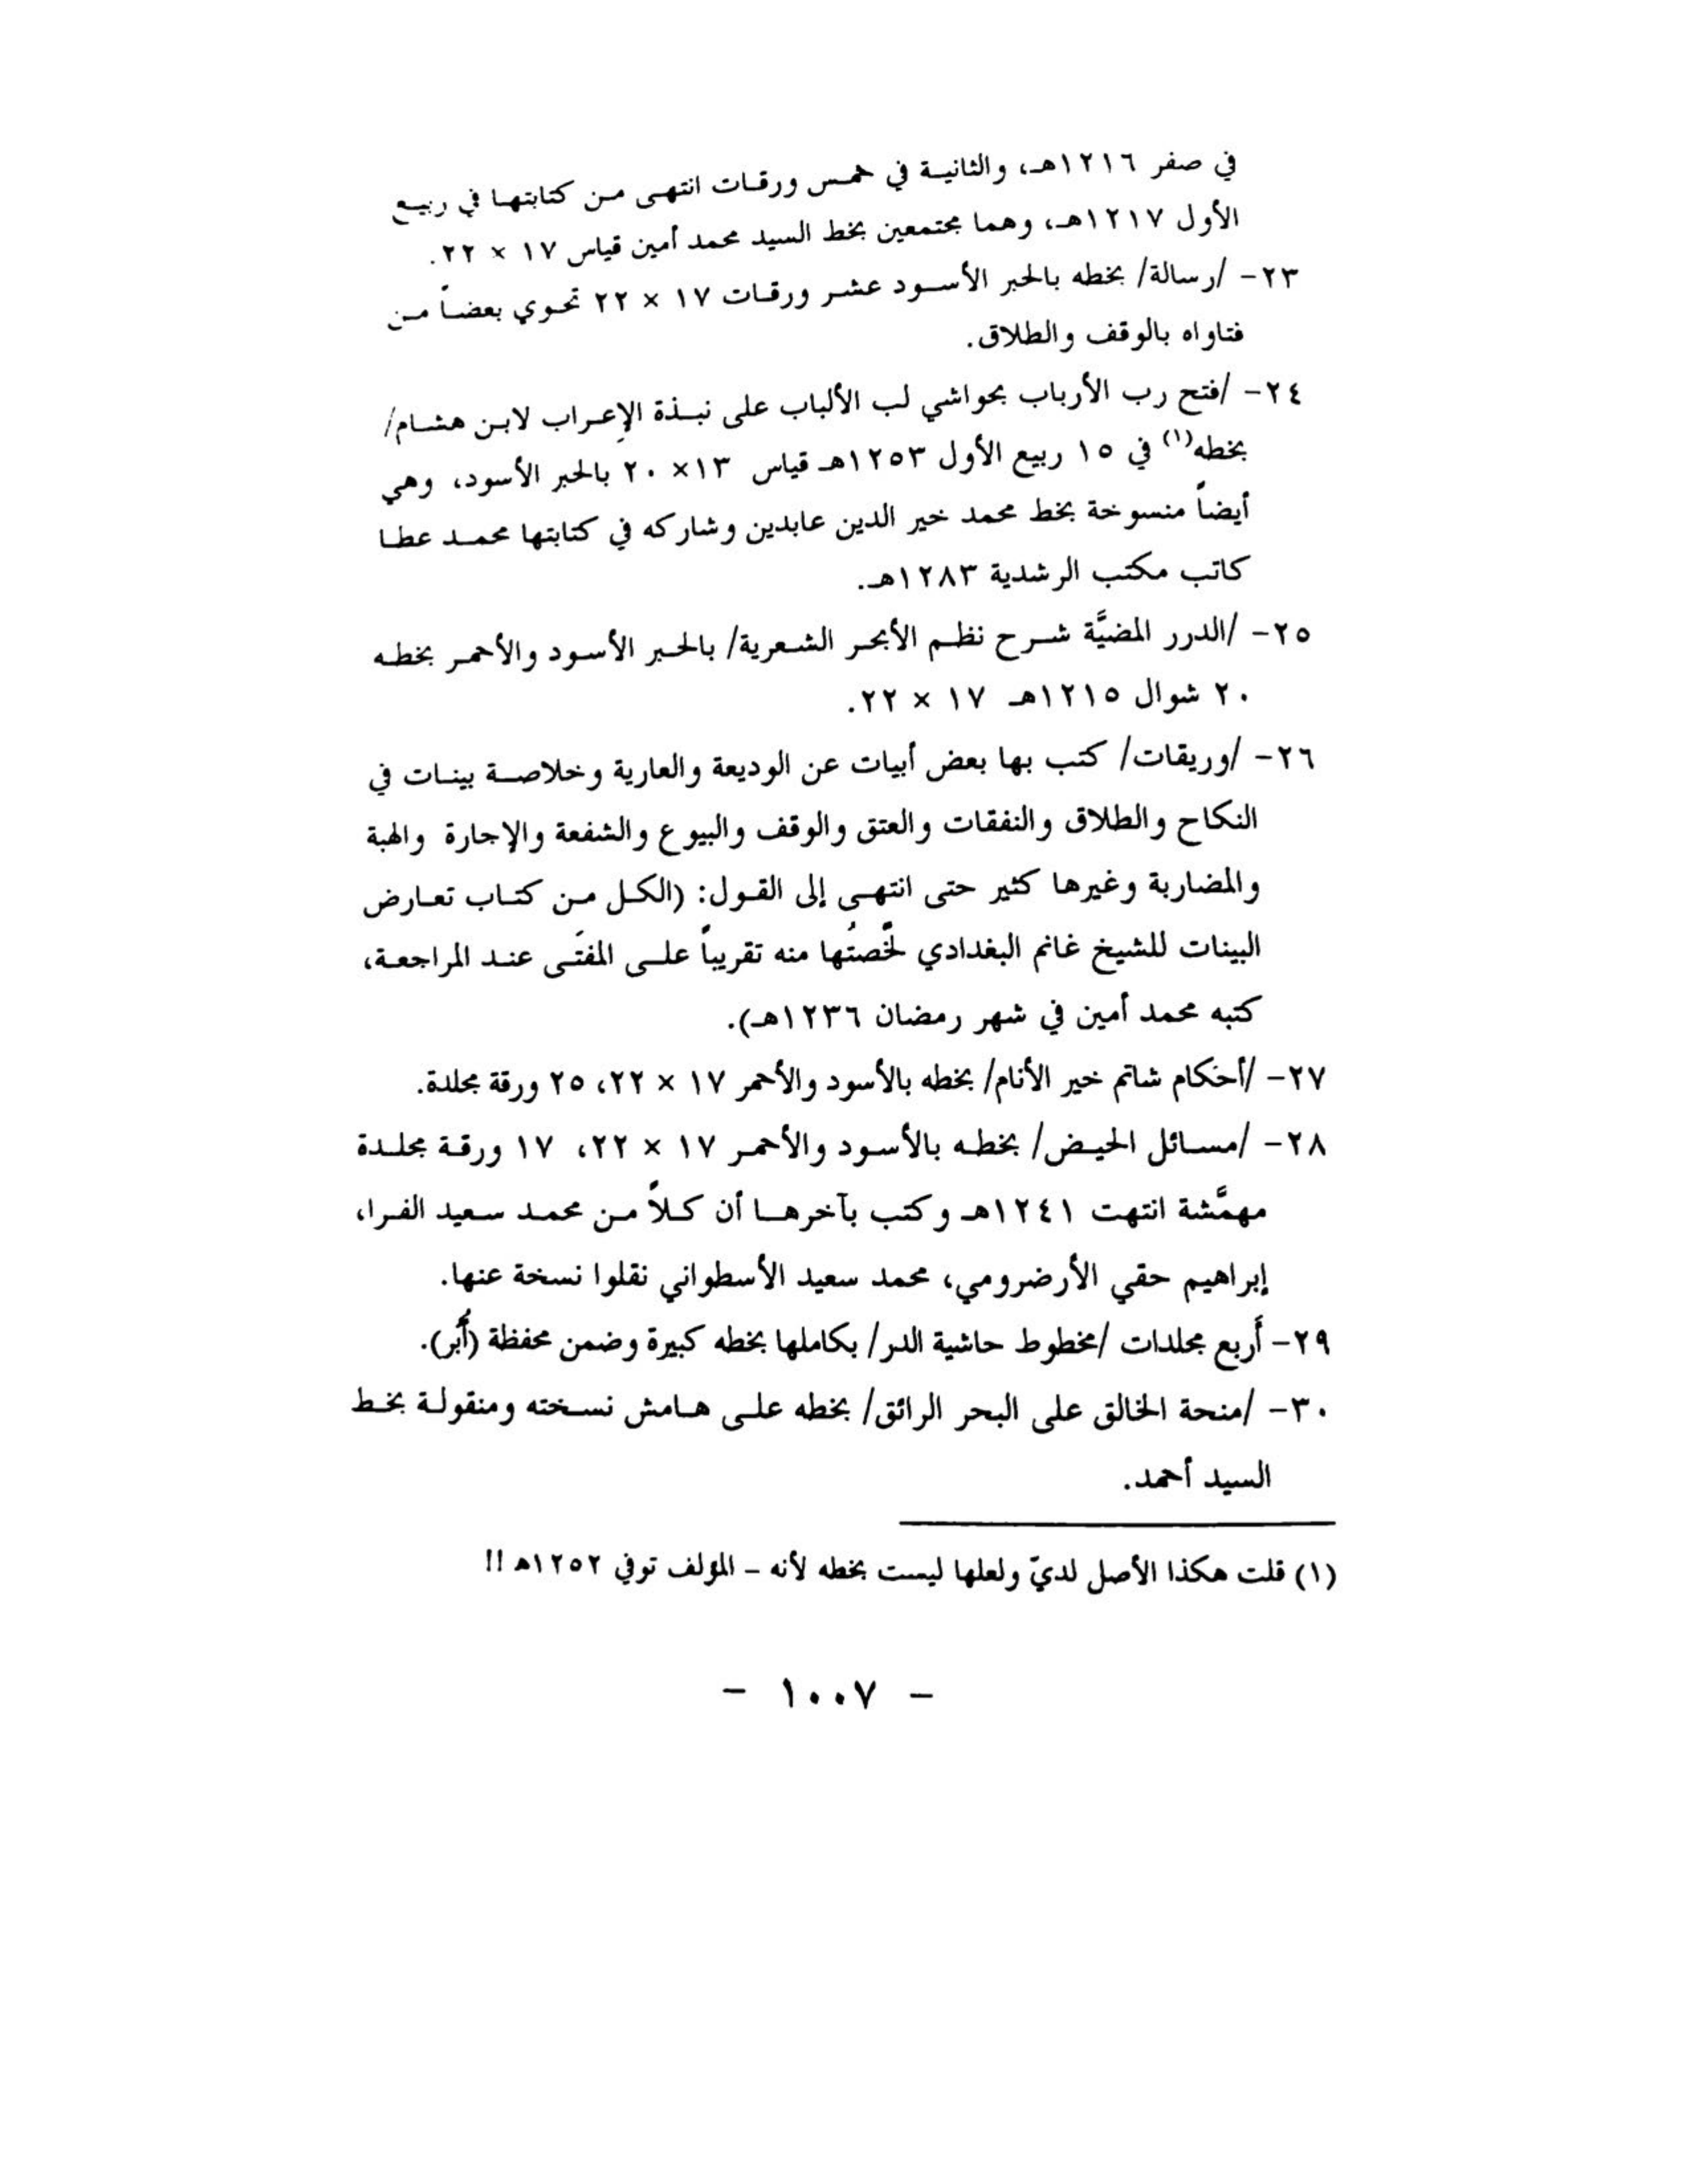 في صفر ١٢١٦هـ، والثانيـة في خمـس ورقـات انتهـى مـن كتابتهـا في ربيـع
الأول ١٢١٧هـ، وهما مجتمعين بخط السيد محمد أمين قياس ١٧ × ٢٢.
٢٣- /رسالة/ بخطه بالحبر الأسـود عشـر ورقـات ١٧ × ٢٢ تحـوي بعضـاً مـن
فتاواه بالوقف والطلاق.
٢٤- /فتح رب الأرباب بحواشي لب الألباب على نبـذة الإعـراب لابـن هشـام/
بخطه(١) في ١٥ ربيع الأول ١٢٥٣هـ قياس ١٣× ٢٠ بالحبر الأسود، وهي
أيضاً منسوخة بخط محمد خير الدين عابدين وشاركه في كتابتها محمـد عطـا
كاتب مكتب الرشدية ١٢٨٣هـ.
٢٥- /الدرر المضيَّة شـرح نظـم الأبحـر الشـعرية/ بالحـبر الأسـود والأحمـر بخطـه
٢٠ شوال ١٢١٥هـ ١٧ × ٢٢.
٢٦- /وريقات/ كتب بها بعض أبيات عن الوديعة والعارية وخلاصـة بينـات في
النكاح والطلاق والنفقات والعتق والوقف والبيوع والشفعة والإجارة والهبة
والمضاربة وغيرها كثير حتى انتهـى إلى القـول: (الكـل مـن كتـاب تعـارض
البينات للشيخ غانم البغدادي لخَّصتُها منه تقريباً علـى المفتَـى عنـد المراجعـة،
كتبه محمد أمين في شهر رمضان ١٢٣٦هـ).
٢٧- /أحكام شاتم خير الأنام/ بخطه بالأسود والأحمر ١٧ × ٢٢، ٢٥ ورقة مجلدة.
٢٨- /مسـائل الحيـض/ بخطـه بالأسـود والأحمـر ١٧ × ٢٢، ١٧ ورقـة مجلـدة
مهمَّشة انتهت ١٢٤١هـ وكتب بآخرهـا أن كـلاً مـن محمـد سـعيد الفـرا،
إبراهيم حقي الأرضرومي، محمد سعيد الأسطواني نقلوا نسخة عنها.
٢٩- أربع مجلدات /مخطوط حاشية الدر/ بكاملها بخطه كبيرة وضمن محفظة (أُبُر).
٣٠- /منحة الخالق على البحر الرائق/ بخطه علـى هـامش نسـخته ومنقولـة بخـط
السيد أحمد.
(١) قلت هكذا الأصل لديّ ولعلها ليست بخطه لأنه - المؤلف توفي ١٢٥٢هـ !!
- ١٠٠٧ -